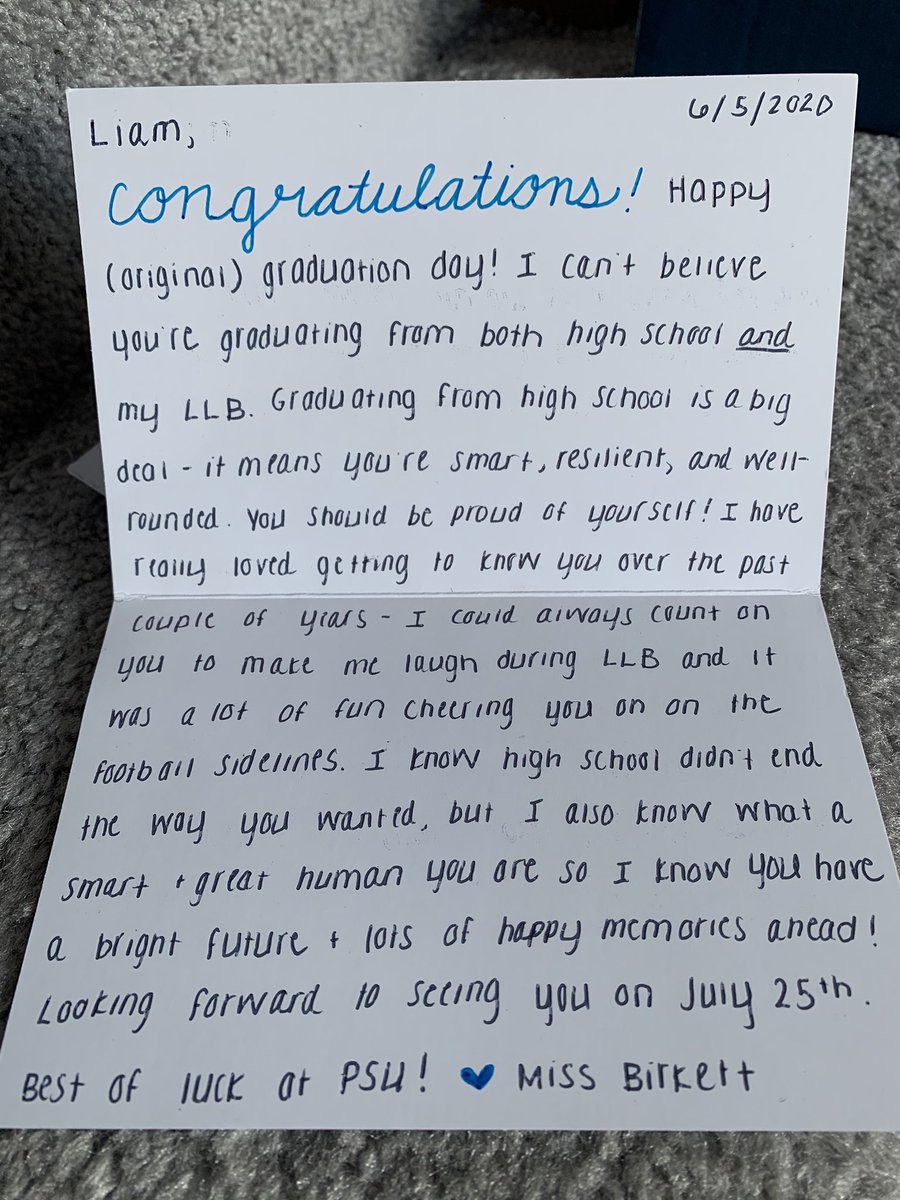 6/5/2020
Liam,
Congratulations! Happy
(original) graduation day! I can't believe
you're graduating from both high school and
my LLB. Graduating from high school is a big
deal - it means you're smart, resilient, and well-
rounded. You should be proud of yourself! I have
really loved getting to know you over the past
couple of years - I could always count on
you to make me laugh during LLB and it
was a lot of fun cheering you on on the
football sidelines. I know high school didn't end
the way you wanted, but I also know what a
smart + great human you are so I know you have
a bright future + lots of happy memories ahead!
Looking forward to seeing you on July 25th.
Best of luck at PSU! ♥ Miss Birkett